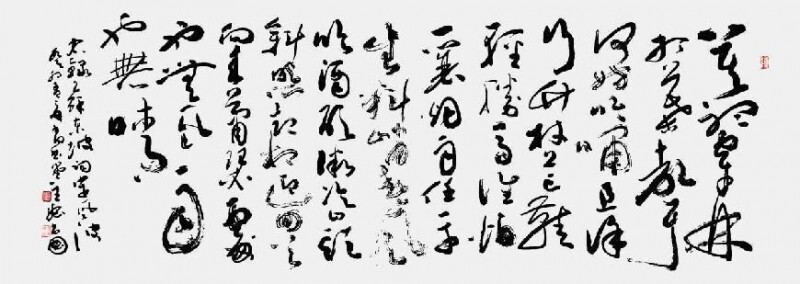 莫聽穿林
打葉聲
何妨吟嘯且徐
行竹杖芒鞋
輕勝馬誰怕
一蓑烟雨任平
生料峭春風
吹酒醒微冷山頭
斜照却相迎回首
向來蕭瑟處歸
去也無風雨
也無晴
録蘇東坡詞定風波